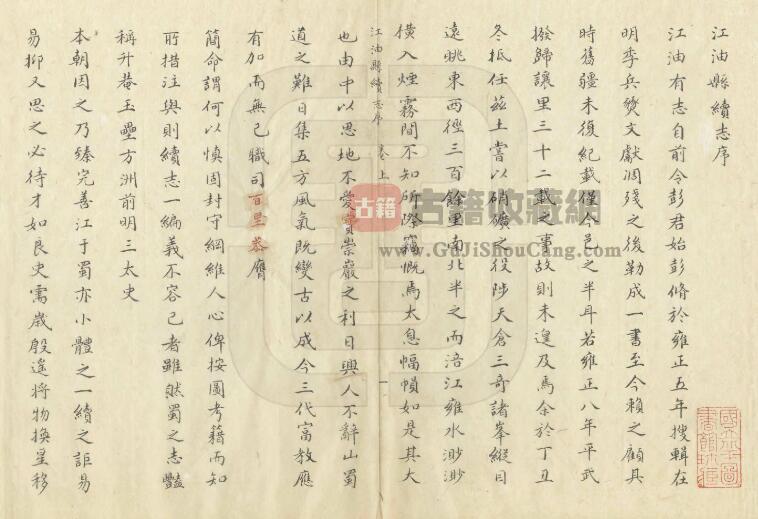 江油縣續志序
江油有志自前令彭君始彭脩於雍正五年搜輯在
明季兵燹文獻凋殘之後勒成一書至今賴之顧其
時舊疆未復紀載僅今邑之半耳若雍正八年平武
撥歸讓里三十二載之事故則未遑及焉余於丁丑
冬抵任茲土嘗以硝磺之役陟天倉三奇諸峯縱目
遠眺東西徑三百餘里南北半之而涪江雍水渺渺
橫入煙霧間不知所際竊慨焉太息幅幀如是其大
江油縣續志序 卷上 一
也由中以思地不愛寶崇巖之利日興人不辭山蜀
道之難日集五方風氣既變古以成今三代富教應
有加而無已職司百里忝膺
簡命謂何以慎固封守綱維人心俾按圖考籍而知
所措注與則續志一編義不容已者雖然蜀之志豔
稱升菴玉壘方洲前明三太史
本朝因之乃臻完善江于蜀亦小體之一續之詎易
易抑又思之必待才如良史需歲殷遙將物換星移
古籍
古籍收藏網
www.GuJiShouCang.com